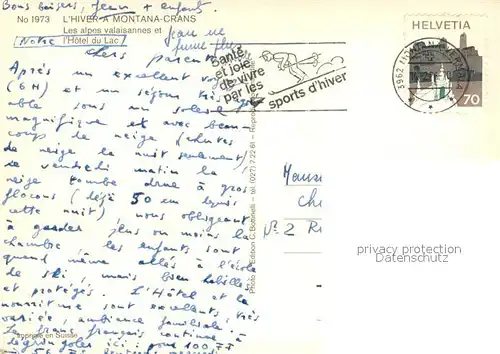 Bons baisers, Jean + enfants.
No 1973 L'HIVER A MONTANA-CRANS
Les alpes valaisannes et
(Notre) l'Hôtel du Lac
Jean ne
fume plus
Chers parents,
Après un excellent voyage
(6H) et un séjour très agré
able sous un soleil
magnifique et avec beau-
coup de neige (chutes
de neige la nuit seulement)
ce vendredi matin la
neige tombe drue à gros
flocons (déjà 50 cm depuis
cette nuit) nous obligeant
à garder plus ou moins la
chambre. les enfants sont
quand même allés à l'école
de ski mais bien habillés
et protégés. L'Hôtel et la
nourriture sont excellents, très
variée, ambiance familiale.
Le franc français continue à
dégringoler ici : pour 100 FF
Imprimé en Suisse
Santé
et joie
de vivre
par les
sports d'hiver
HELVETIA
70
3962 MONTANA-VERMALA
Photo et Edition C. Bottinelli - tél. (027) 7 22 81 - Reprod
N° 2 R
privacy protection
Datenschutz